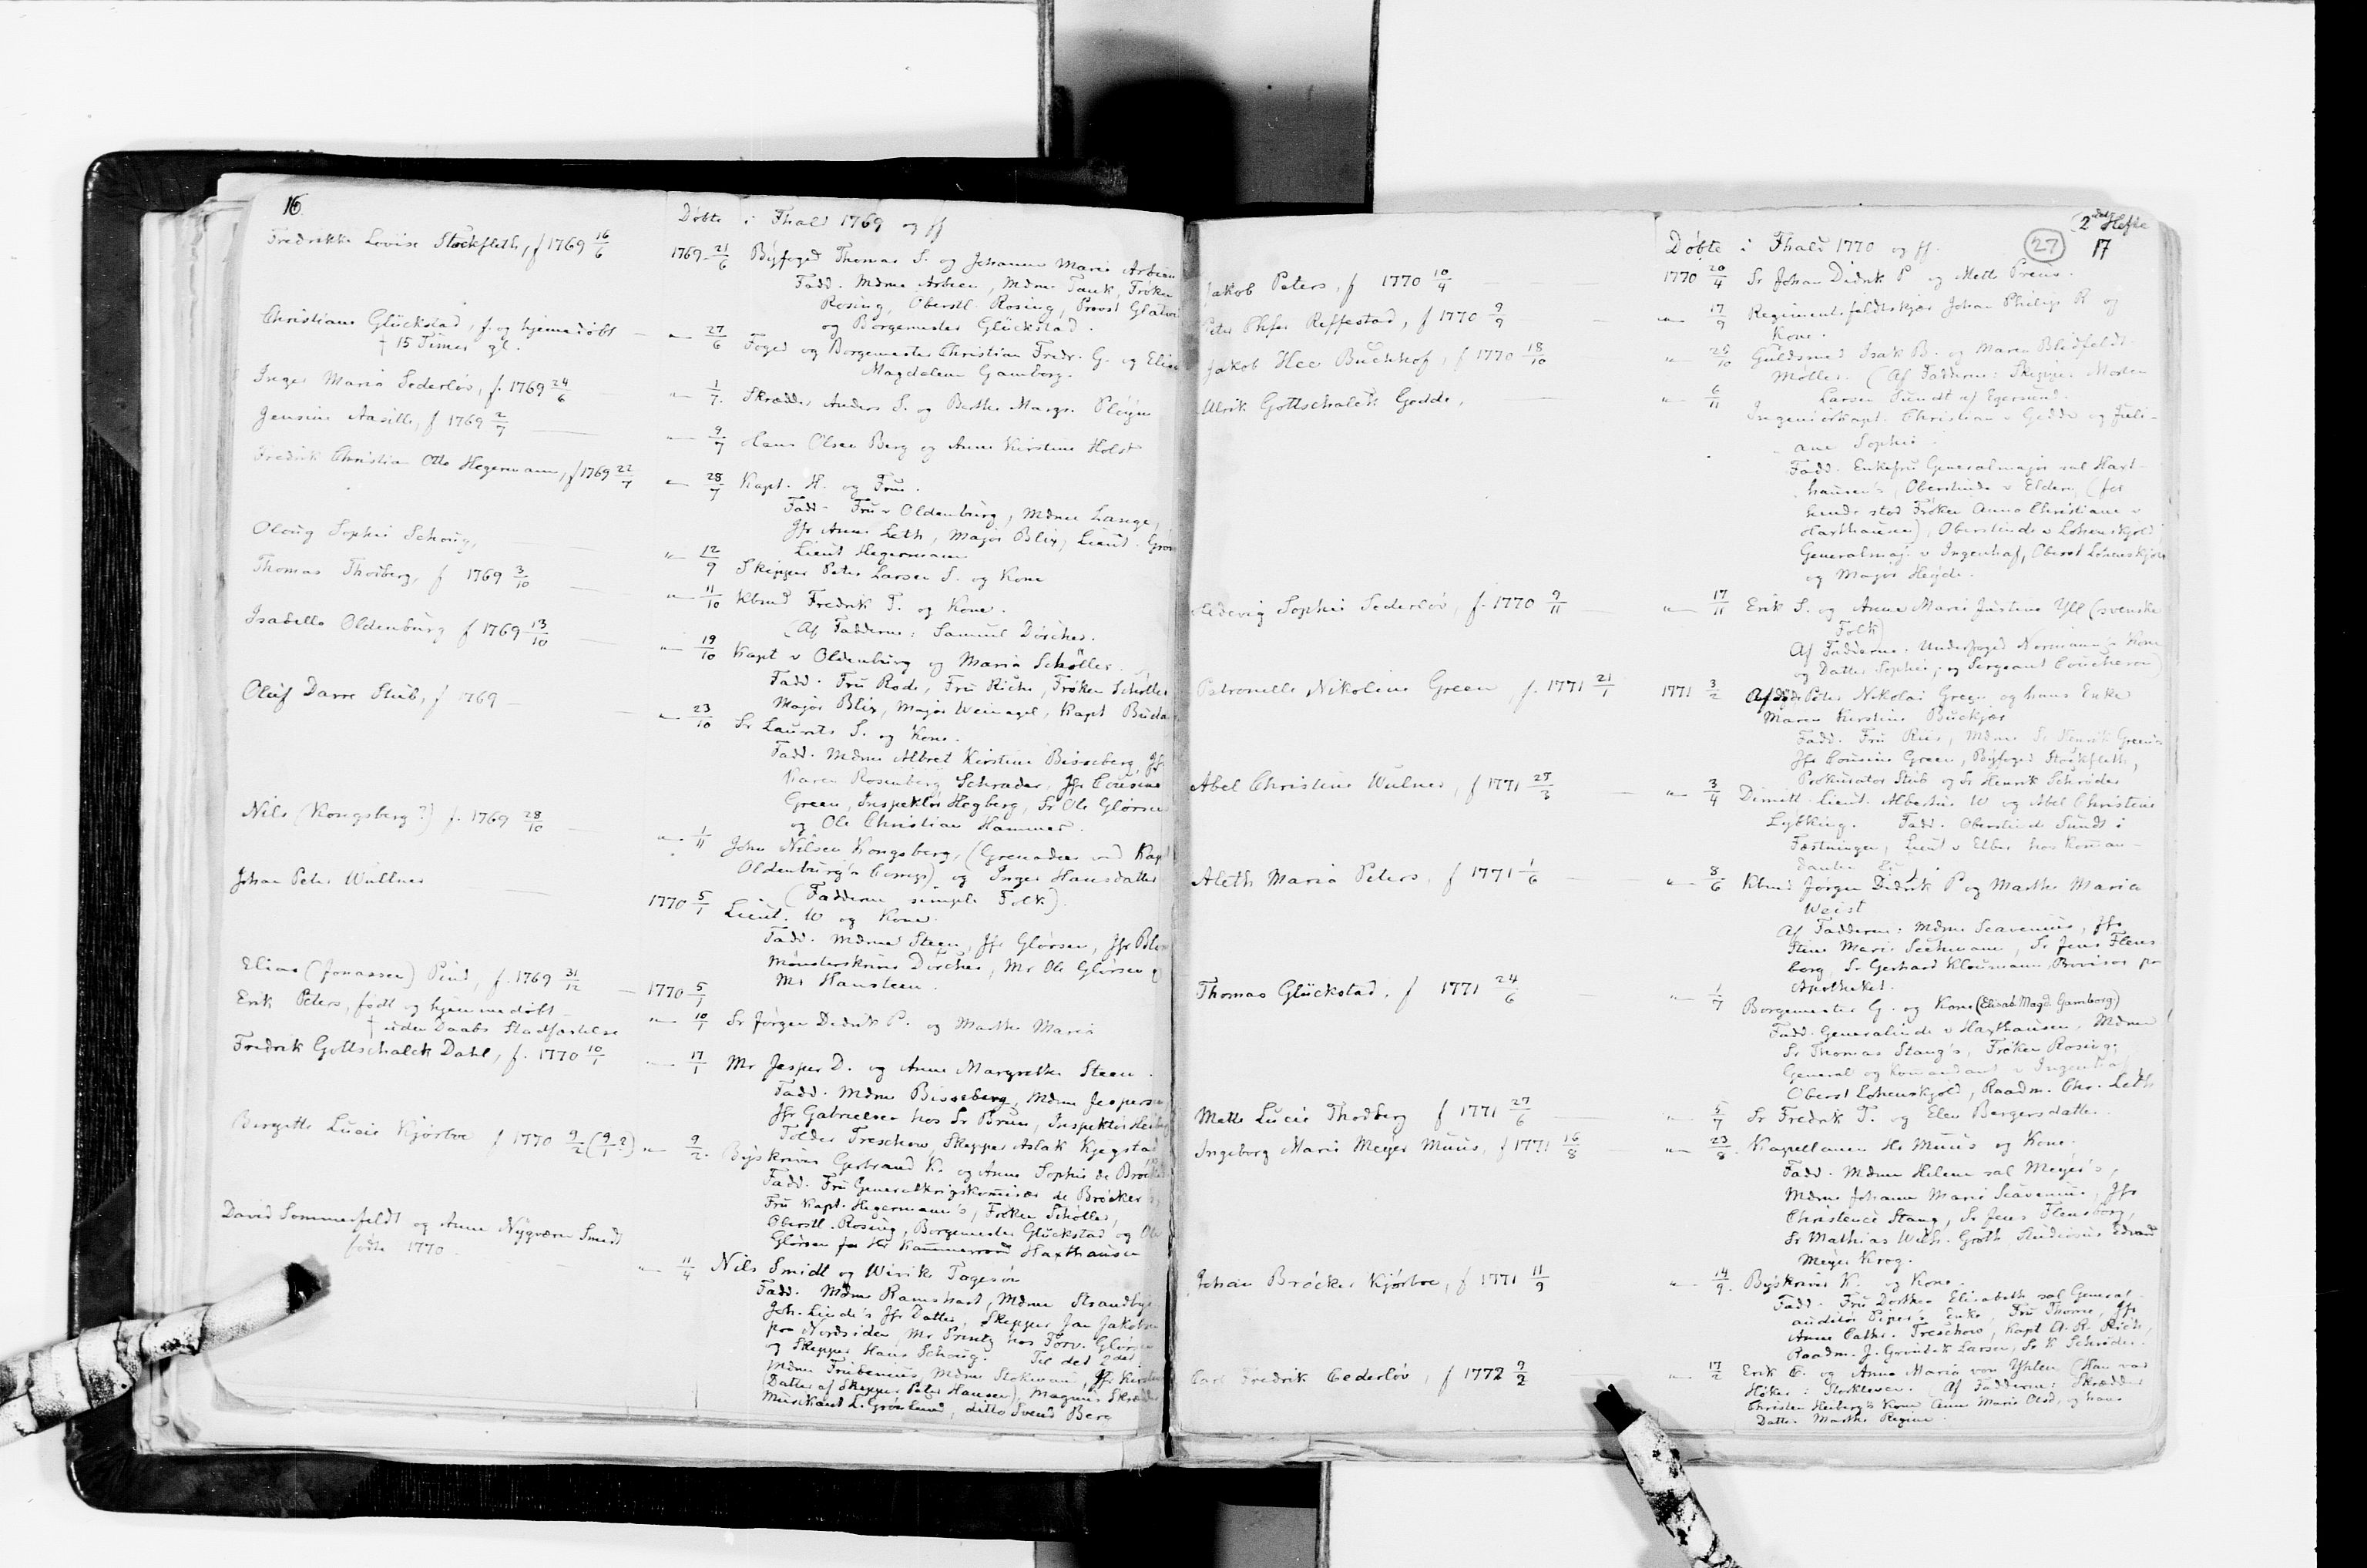 16
Døbte i Fhald 1769 og ff
Fredrikke Lovise Stockfleth, f 1769 16/6
1769 21/6 Byfoged Thomas S. og Johanne Marie Arbien
Fadd. Mdme Arbien, Mdme Tank, Frøken
Rosing, Oberstl. Rosing, Provst
og Borgemester Glückstad.
Christiane Glückstad, f. og hjemmedøbt
† 15 Timer gl.
" 27/6 Foged og Borgemester Christian Fredr. G. og
Magdalene Gamborg.
Inger Maria Sederløv, f. 1769 24/6
" 1/7 Skrædder Anders S. og Berthe Margr. Pløyn
Jensine Aasille, f 1769 2/7
" 9/7 Hans Olsen Berg og Anne Kirstine Holst
Fredrik Christian Otto Hegermann, f 1769 22/7
" 28/7 Kapt. H. og Frue.
Fadd. Fru v Oldenburg, Mdme Lange,
Jfr Anne Leth, Major Blix, Lieut.
Lieut Hegermann
Oloug Sophie Schoug,
" 12/9 Skipper Peter Larsen S. og Kone
Thomas Thodberg, f 1769 3/10
" 11/10 Kbmd Fredrik T. og Kone.
(Af Fadderne: Samuel Dørcher.
Isabella Oldenburg f 1769 13/10
" 19/10 Kapt v Oldenburg og Maria Schøller
Fadd. Fru Rode, Fru Riche, Frøken Schøller
Major Blix, Major Weinagel, Kapt
Oluf Darre Stub, f 1769
" 23/10 Sr Laurits S. og Kone.
Fadd. Mdme Albret Kirstine Bisseberg, Jfr
Karen Rosenberg Schrader, Jfr Cousine
Green, Inspektør Hegberg, Sr Ole Glørsen
og Ole Christian Hammer.
Nils (Kongsberg?) f. 1769 28/10
" 1/11 John Nilsen Kongsberg, (Grenader ved Kapt
Oldenburg's Comp) og Inger Hansdatter
(Fadderne simple Folk).
Johan Peter Wullner
1770 5/1 Lieut. W og Kone.
Fadd. Mdme Steen, Jfr Glørsen, Jfr
Mønsterskriver Dørcher, Mr Ole Glørsen og
Mr Hansteen.
Elias (Jonassen) Pind, f. 1769 31/12
1770 5/1
Erik Peters, født og hjemmedøbt
† uden Daabs Stadfæstelse
" 10/1 Sr Jørgen Didrik P. og Marthe Maria
Fredrik Gottschalck Dahl, f. 1770 10/1
" 17/1 Mr Jesper D. og Anne Margrethe Steen.
Fadd. Mdme Bisseberg, Mdme Jespersen
Jfr Gabrielsen hos Sr Bruun, Inspektør
Tolder Treschow, Skipper Aslak Kjegstad
Bergitte Lucie Kjørboe f 1770 9/2 (9/1?)
" 9/2. Byskriver Gerbrand K. og Anne Sophie de Brøcker
Fadd. Fru Generalkrigskomisær de Brøcker's,
Fru Kapt. Hegermann's, Frøken Schøller,
Oberstl. Rosing, Borgemester Glückstad og
Glørsen for Hr Kammerraad Haxthausen
David Sommerfeldt og Anne Nygværn Smidt
fødte 1770.
" 11/4 Nils Smidt og Wivike Tagesøn
Fadd. Mdme Ramshart, Mdme Strandbye
Joh. Linde's Jfr Datter, Skipper Jan Jakobsen
paa Nordsiden, Mr Printz hos Forv. Glørsen
og Skipper Hans Schoug. Til det 2det
Mdme Friebenius, Mdme Stokmann, Jfr Kirstine
(Datter af Skipper Peter Hansen), Magnus Skrædder
Musikant L. Grønlund, ditto Svend Berg
2det Hefte
27
17
Døbte i Fhald 1770 og ff.
Jakob Peters, f 1770 10/4
1770 20/4 Sr Johan Didrik P og Mette Preus.
Peter Chfer Reffestad, f 1770 9/9
" 17/9 Regimentsfeldtskjær Johan Philip R og
Kone.
Jakob Hee Buchhof, f 1770 18/10
" 25/10 Guldsmed Isak B. og Maren Blidfeldt
Møller. (Af Fadderne: Skipper Morten
Larsen Sundt af Egersund.
Ulrik Gottschalck Gedde,
" 6/11 Ingeniørkapt. Christian v Gedde og Juli-
ane Sophie
Fadd. Enkefru Generalmajor sal Haxt-
hausen's, Oberstinde v Elden, (for
hende stod Frøken Anna Christiane v
Haxthausen), Oberstinde v Lohenskjold,
Generalmaj. v Ingenhaf, Oberst Lohenskjold
og Major Heyde.
Hedevig Sophie Sederløv, f. 1770 9/11
" 17/11 Erik S. og Anne Marie Justine Yll (svenske
Folk)
Af Fadderne: Underfoged Normann's Kone
og Datter Sophie, og Sergeant Coucheron)
Petronelle Nikoline Green, f. 1771 21/1
1771 3/2 Afdøde Peter Nikolai Green og hans Enke
Maren Kirstine Buckjær
Fadd. Fru Ries, Mdme Sr Henrik Green's
Jfr Cousine Green, Byfoged Stockfleth,
Prokurator Stub og Sr Henrik Schrøder
Abel Christine Wulner, f 1771 25/3
" 3/4 Dimitt. Lieut. Albertus W og Abel Christine
Lybkling. Fadd. Oberstinde Sundt i
Fæstningen, Lieut v Elber hos Komman-
danten
Aleth Maria Peters, f 1771 1/6
" 8/6 Kbmd Jørgen Didrik P og Marthe Maria
Weist
Af Fadderne: Mdme Scavenius, Jfr
Stine Marie Seehmann, Sr Jens Flens
borg, Sr Gerhard Kloumann, Provisor paa
Apotheket.
Thomas Glückstad, f 1771 24/6
" 1/7 Borgemester G. og Kone (Elisab. Magd. Gamborg)
Fadd. Generalinde v Haxthausen, Mdme
Sr Thomas Stang's, Frøken Rosing,
General og Komandant v Ingenhaf
Oberst Lohenskjold, Raadm. Chr. Leth
Mette Lucie Thodberg f 1771 27/6
" 5/7 Sr Fredrik T. og Elen Borgersdatter.
Ingeborg Marie Meyer Muus, f 1771 16/8
" 23/8. Kapellanen Hr Muus og Kone.
Fadd. Mdme Helene sal Meyer's,
Mdme Johanne Marie Scavenius, Jfr
Christence Stang, Sr Jens Flensborg,
Sr Mathias Wilh. Groth, Studiosus Edvard
Meyer Krog.
Johan Brøcker Kjørboe, f 1771 11/9
" 14/9. Byskriver K. og Kone.
Fadd. Fru Dorthea Elisabeth sal General-
auditør Piper's Enke, Fru Thorne, Jfr
Anne Cathr. Treschow, Kapt A. R. Riche,
Raadm. J. Gorrissen Larsen, Sr H Schrøder.
Carl Fredrik Cederløv, f 1772 9/2
" 17/2 Erik C. og Anna Maria von Yhlen (Han var
Høker i Storkleven. (Af Fadderne: Skrædder
Christen Heiberg's Kone Anne Marie Olsd, og hans
Datter Marthe Regine.